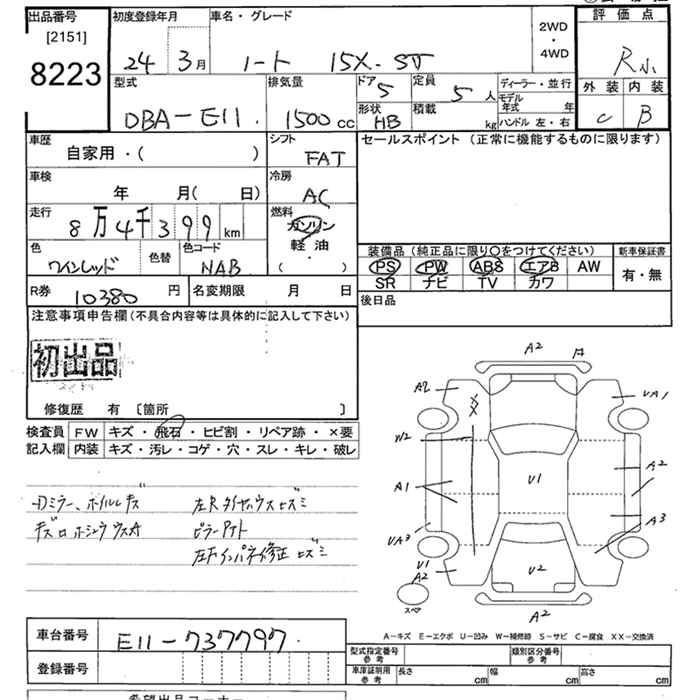 出品番号
[2151]
8223
初度登録年月
24 3月
車名・グレード
ノート 15X-SV
2WD
・
4WD
評価点
R
外装 内装
C B
型式
DBA-E11
排気量
1500 cc
ドア
5
定員
5 人
形状
HB
積載
kg
ディーラー・並行
モデル年式 年
ハンドル 左・右
車歴
自家用・( )
シフト
FAT
セールスポイント (正常に機能するものに限ります)
車検
年 月( 日)
冷房
AC
走行
8万4千399 km
燃料
ガソリン
軽油
( )
色
ワインレッド
色替
色コード
NAB
装備品 (純正品に限り○をつけてください)
PS PW ABS エアB AW
SR ナビ TV カワ
新車保証書
有・無
R券
10380 円
名変期限 月 日
後日品
注意事項申告欄 (不具合内容等は具体的に記入して下さい)
初出品
修復歴 有 [箇所 ]
検査員記入欄
FW キズ・飛石・ヒビ割・リペア跡・×要
内装 キズ・汚レ・コゲ・穴・スレ・キレ・破レ
A2
A2
XX
W2
A1
UA3
U1
A2
スペア
U1
U2
UA1
A2
A3
A2
A-キズ E-エクボ U-凹み W-補修跡 S-サビ C-腐食 XX-交換済
車台番号
E11-737797
登録番号
型式指定番号
参考
類別区分番号
参考
車庫証明用
参考
長さ cm 幅 cm 高さ cm
希望出品コーナー